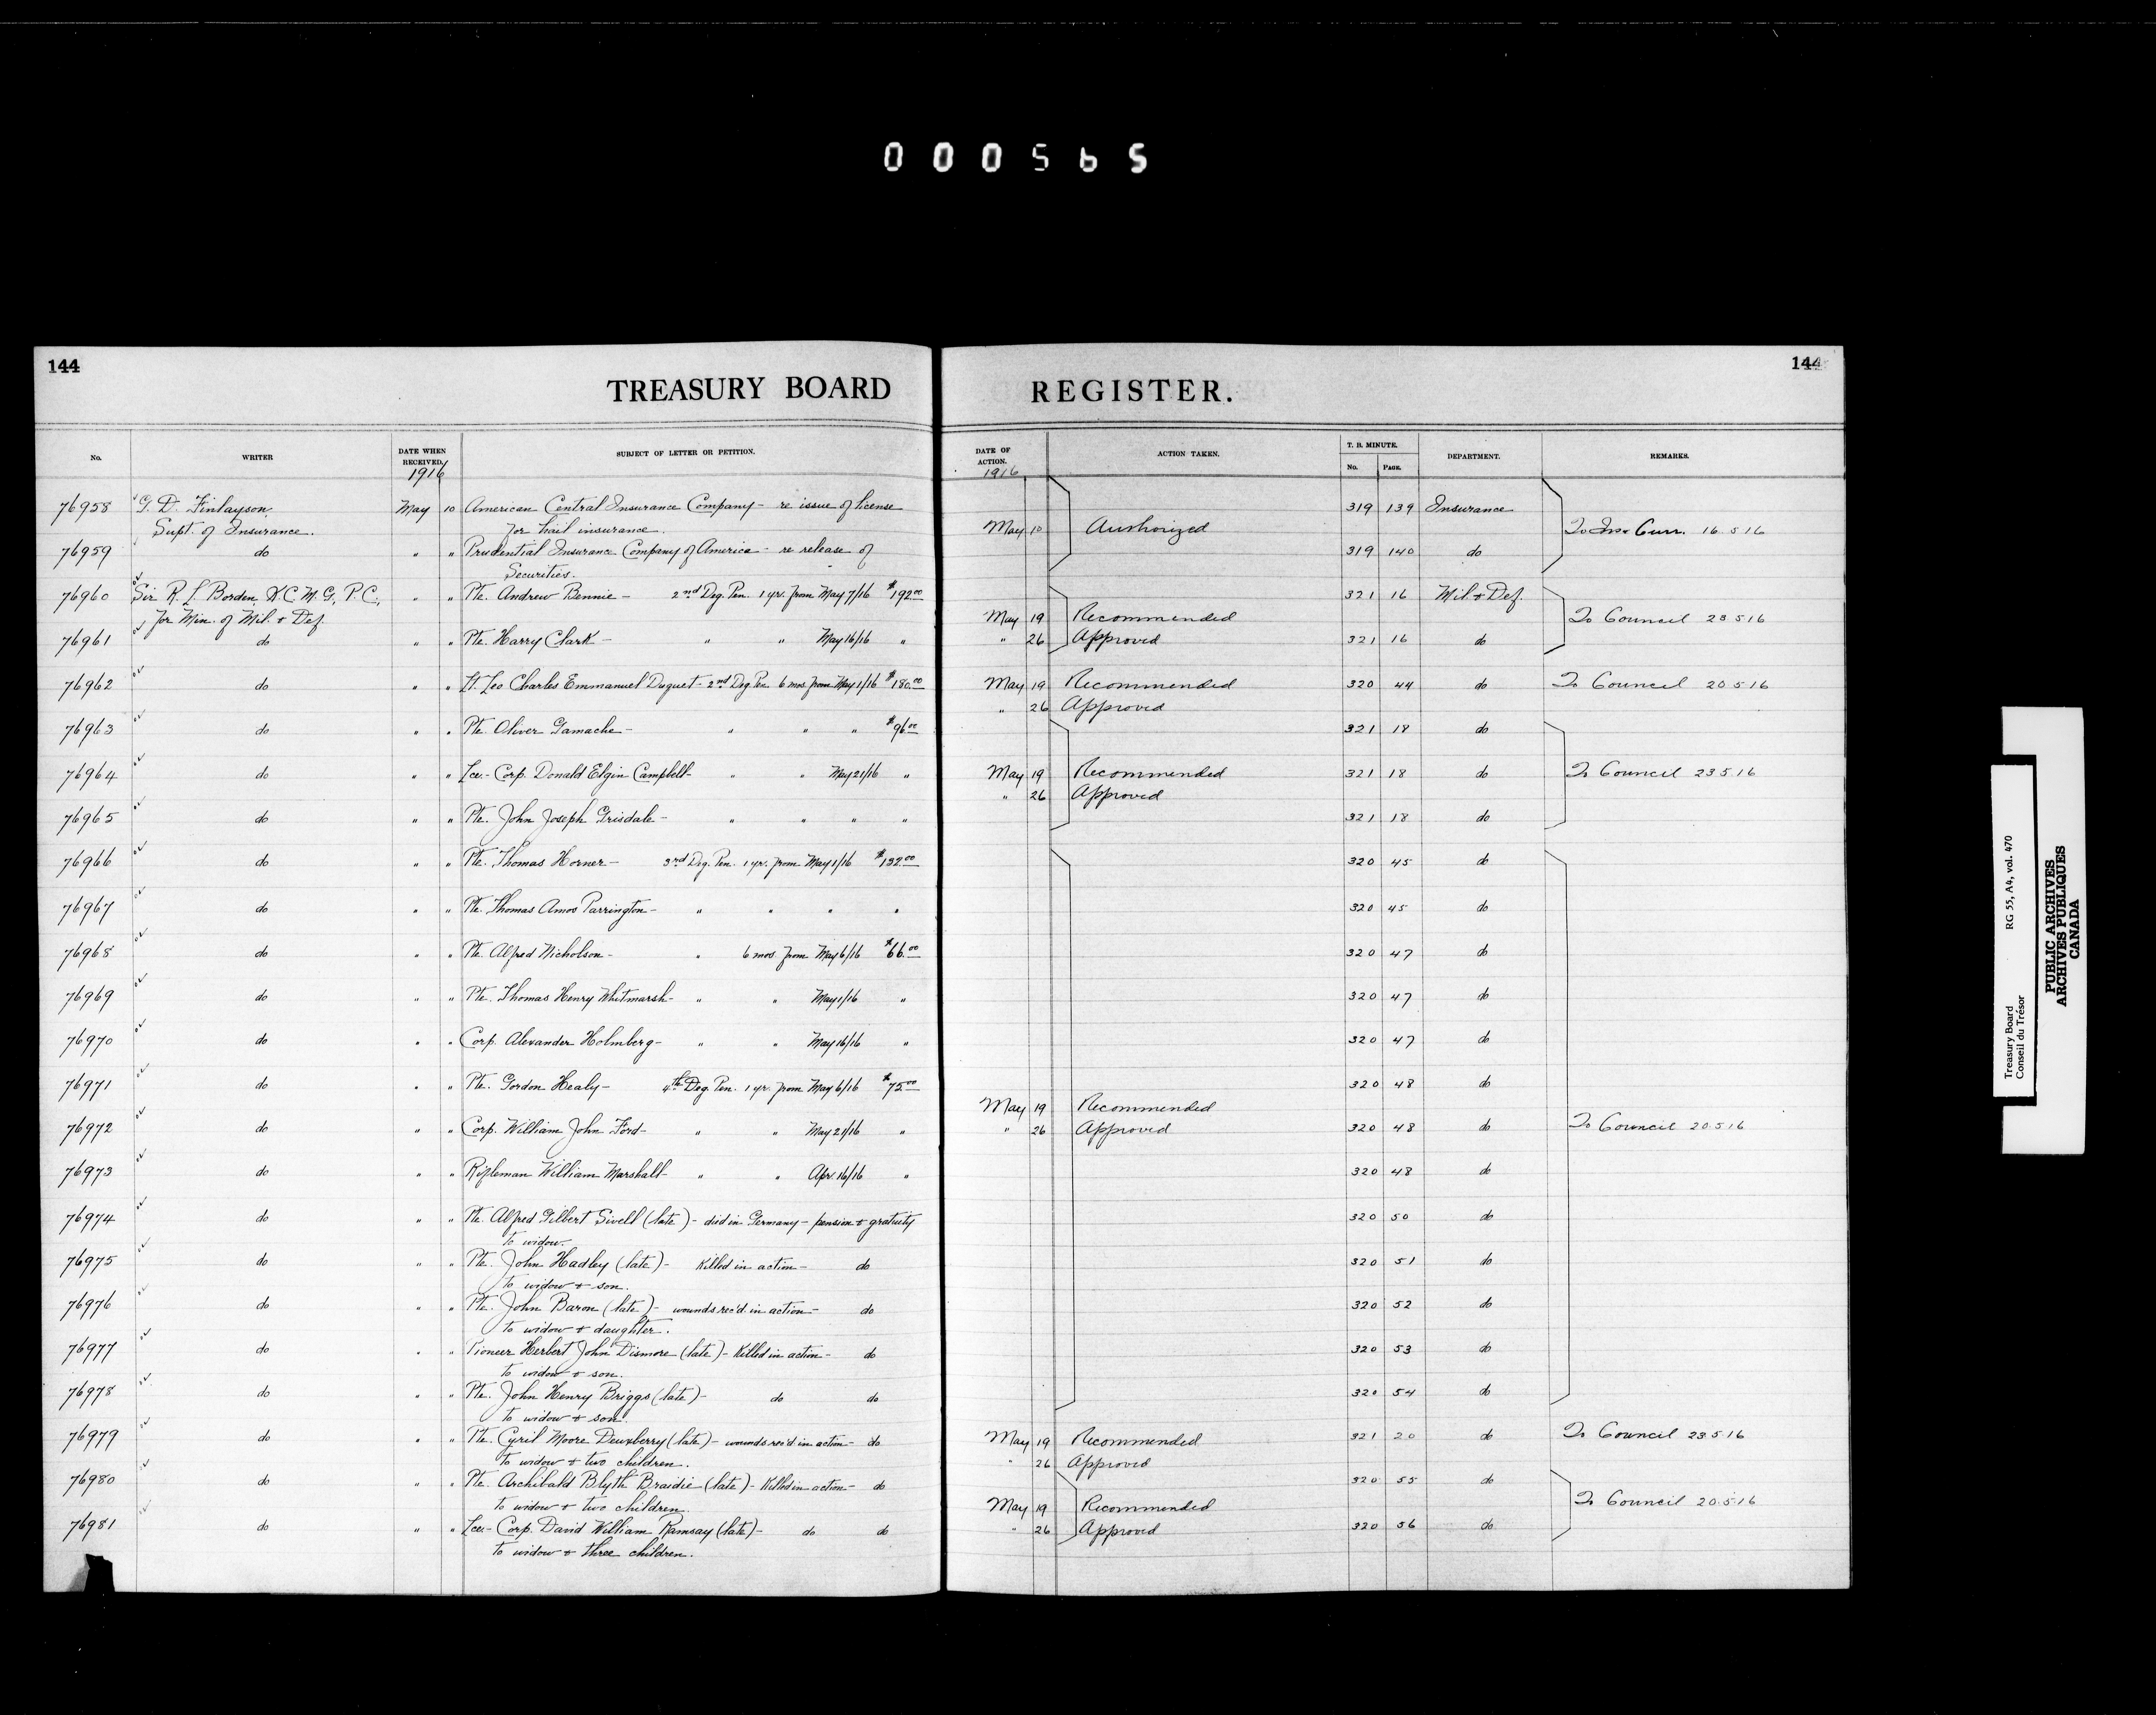 000565
144
144
TREASURY BOARD REGISTER.
No. WRITER DATE WHEN RECEIVED. SUBJECT OF LETTER OR PETITION. DATE OF ACTION. ACTION TAKEN. T. B. MINUTE. No. PAGE. DEPARTMENT. REMARKS.
1916 1916
76958 G. D. Finlayson, May 10 American Central Insurance Company - re issue of license 319 139 Insurance
Supt. of Insurance. for hail insurance. May 10 Authorized To Curr. 16 5 16
76959 do " " Prudential Insurance Company of America - re release of 319 140 do
Securities.
76960 Sir R. L. Borden, K.C.M.G., P.C., " " Pte. Andrew Bennie - 2nd Deg. Pen. 1 yr. from May 7/16 $192.00 321 16 Mil. & Def.
for Min. of Mil. & Def. May 19 Recommended To Council 23 5 16
76961 do " " Pte. Harry Clark - " " May 16/16 " " 26 Approved 321 16 do
76962 do " " Lt. Leo Charles Emmanuel Duguet - 2nd Deg. Pen. 6 mos. from May 1/16 $180.00 May 19 Recommended 320 44 do To Council 20 5 16
" 26 Approved
76963 do " " Pte. Oliver Gamache - " " " $96.00 321 18 do
76964 do " " Lce.-Corp. Donald Elgin Campbell - " " May 21/16 " May 19 Recommended 321 18 do To Council 23 5 16
" 26 Approved
76965 do " " Pte. John Joseph Grisdale - " " " " 321 18 do
76966 do " " Pte. Thomas Horner - 3rd Deg. Pen. 1 yr. from May 1/16 $132.00 320 45 do
76967 do " " Pte. Thomas Amos Parrington - " " " " 320 45 do
76968 do " " Pte. Alfred Nicholson - " 6 mos from May 6/16 $66.00 320 47 do
76969 do " " Pte. Thomas Henry Whitmarsh - " " May 1/16 " 320 47 do
76970 do " " Corp. Alexander Holmberg - " " May 16/16 " 320 47 do
76971 do " " Pte. Gordon Healy - 4th Deg. Pen. 1 yr. from May 6/16 $75.00 320 48 do
May 19 Recommended
76972 do " " Corp. William John Ford - " " May 21/16 " " 26 Approved 320 48 do To Council 20 5 16
76973 do " " Rifleman William Marshall - " " Apr. 16/16 " 320 48 do
76974 do " " Pte. Alfred Gilbert Sivell (late) - died in Germany - pension & gratuity 320 50 do
to widow.
76975 do " " Pte. John Hadley (late) - Killed in action - do 320 51 do
to widow & son.
76976 do " " Pte. John Baron (late) - wounds rec'd. in action - do 320 52 do
to widow & daughter.
76977 do " " Pioneer Herbert John Dismore (late) - Killed in action - do 320 53 do
to widow & son.
76978 do " " Pte. John Henry Briggs (late) - do do 320 54 do
to widow & son.
76979 do " " Pte. Cyril Moore Dewxberry (late) - wounds rec'd in action - do May 19 Recommended 321 20 do To Council 23 5 16
to widow & two children. " 26 Approved
76980 do " " Pte. Archibald Blyth Braidie (late) - Killed in action - do 320 55 do
to widow & two children. May 19 Recommended To Council 20 5 16
76981 do " " Lce.-Corp. David William Ramsay (late) - do do " 26 Approved 320 56 do
to widow & three children.
Treasury Board RG 55, A4, vol. 470
Conseil du Trésor
PUBLIC ARCHIVES
ARCHIVES PUBLIQUES
CANADA